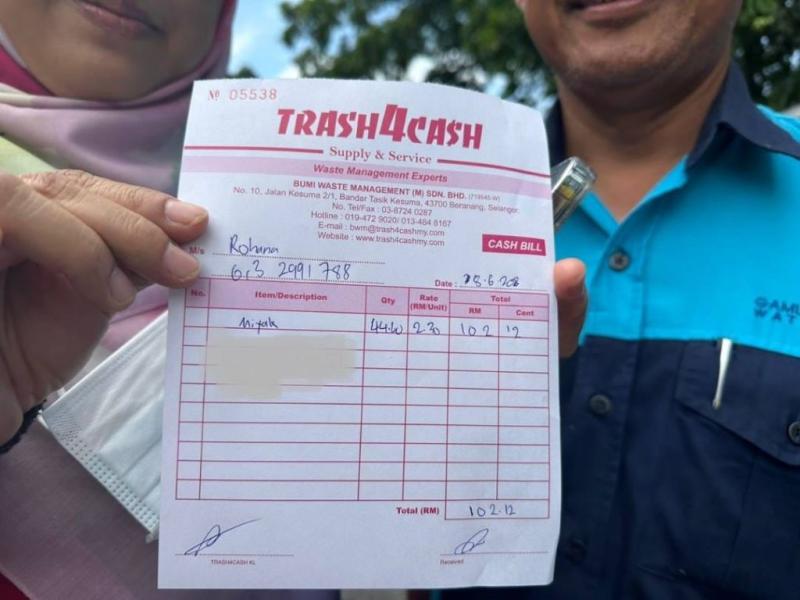 Nº 05538
TRASH4CASH
Supply & Service
Waste Management Experts
BUMI WASTE MANAGEMENT (M) SDN. BHD. (719545-W)
No. 10, Jalan Kesuma 2/1, Bandar Tasik Kesuma, 43700 Beranang, Selangor.
No. Tel/Fax : 03-8724 0287
Hotline : 019-472 9020/ 013-484 8167
E-mail : bwm@trash4cashmy.com
Website : www.trash4cashmy.com
CASH BILL
M/s Rohana
6,3 2991 788
Date :
No. Item/Description Qty Rate (RM/Unit) Total RM Cent
Miyak 44.40 2.30 102 12
Total (RM) 102.12
TRASH4CASH KL Received
GAMU
WAT